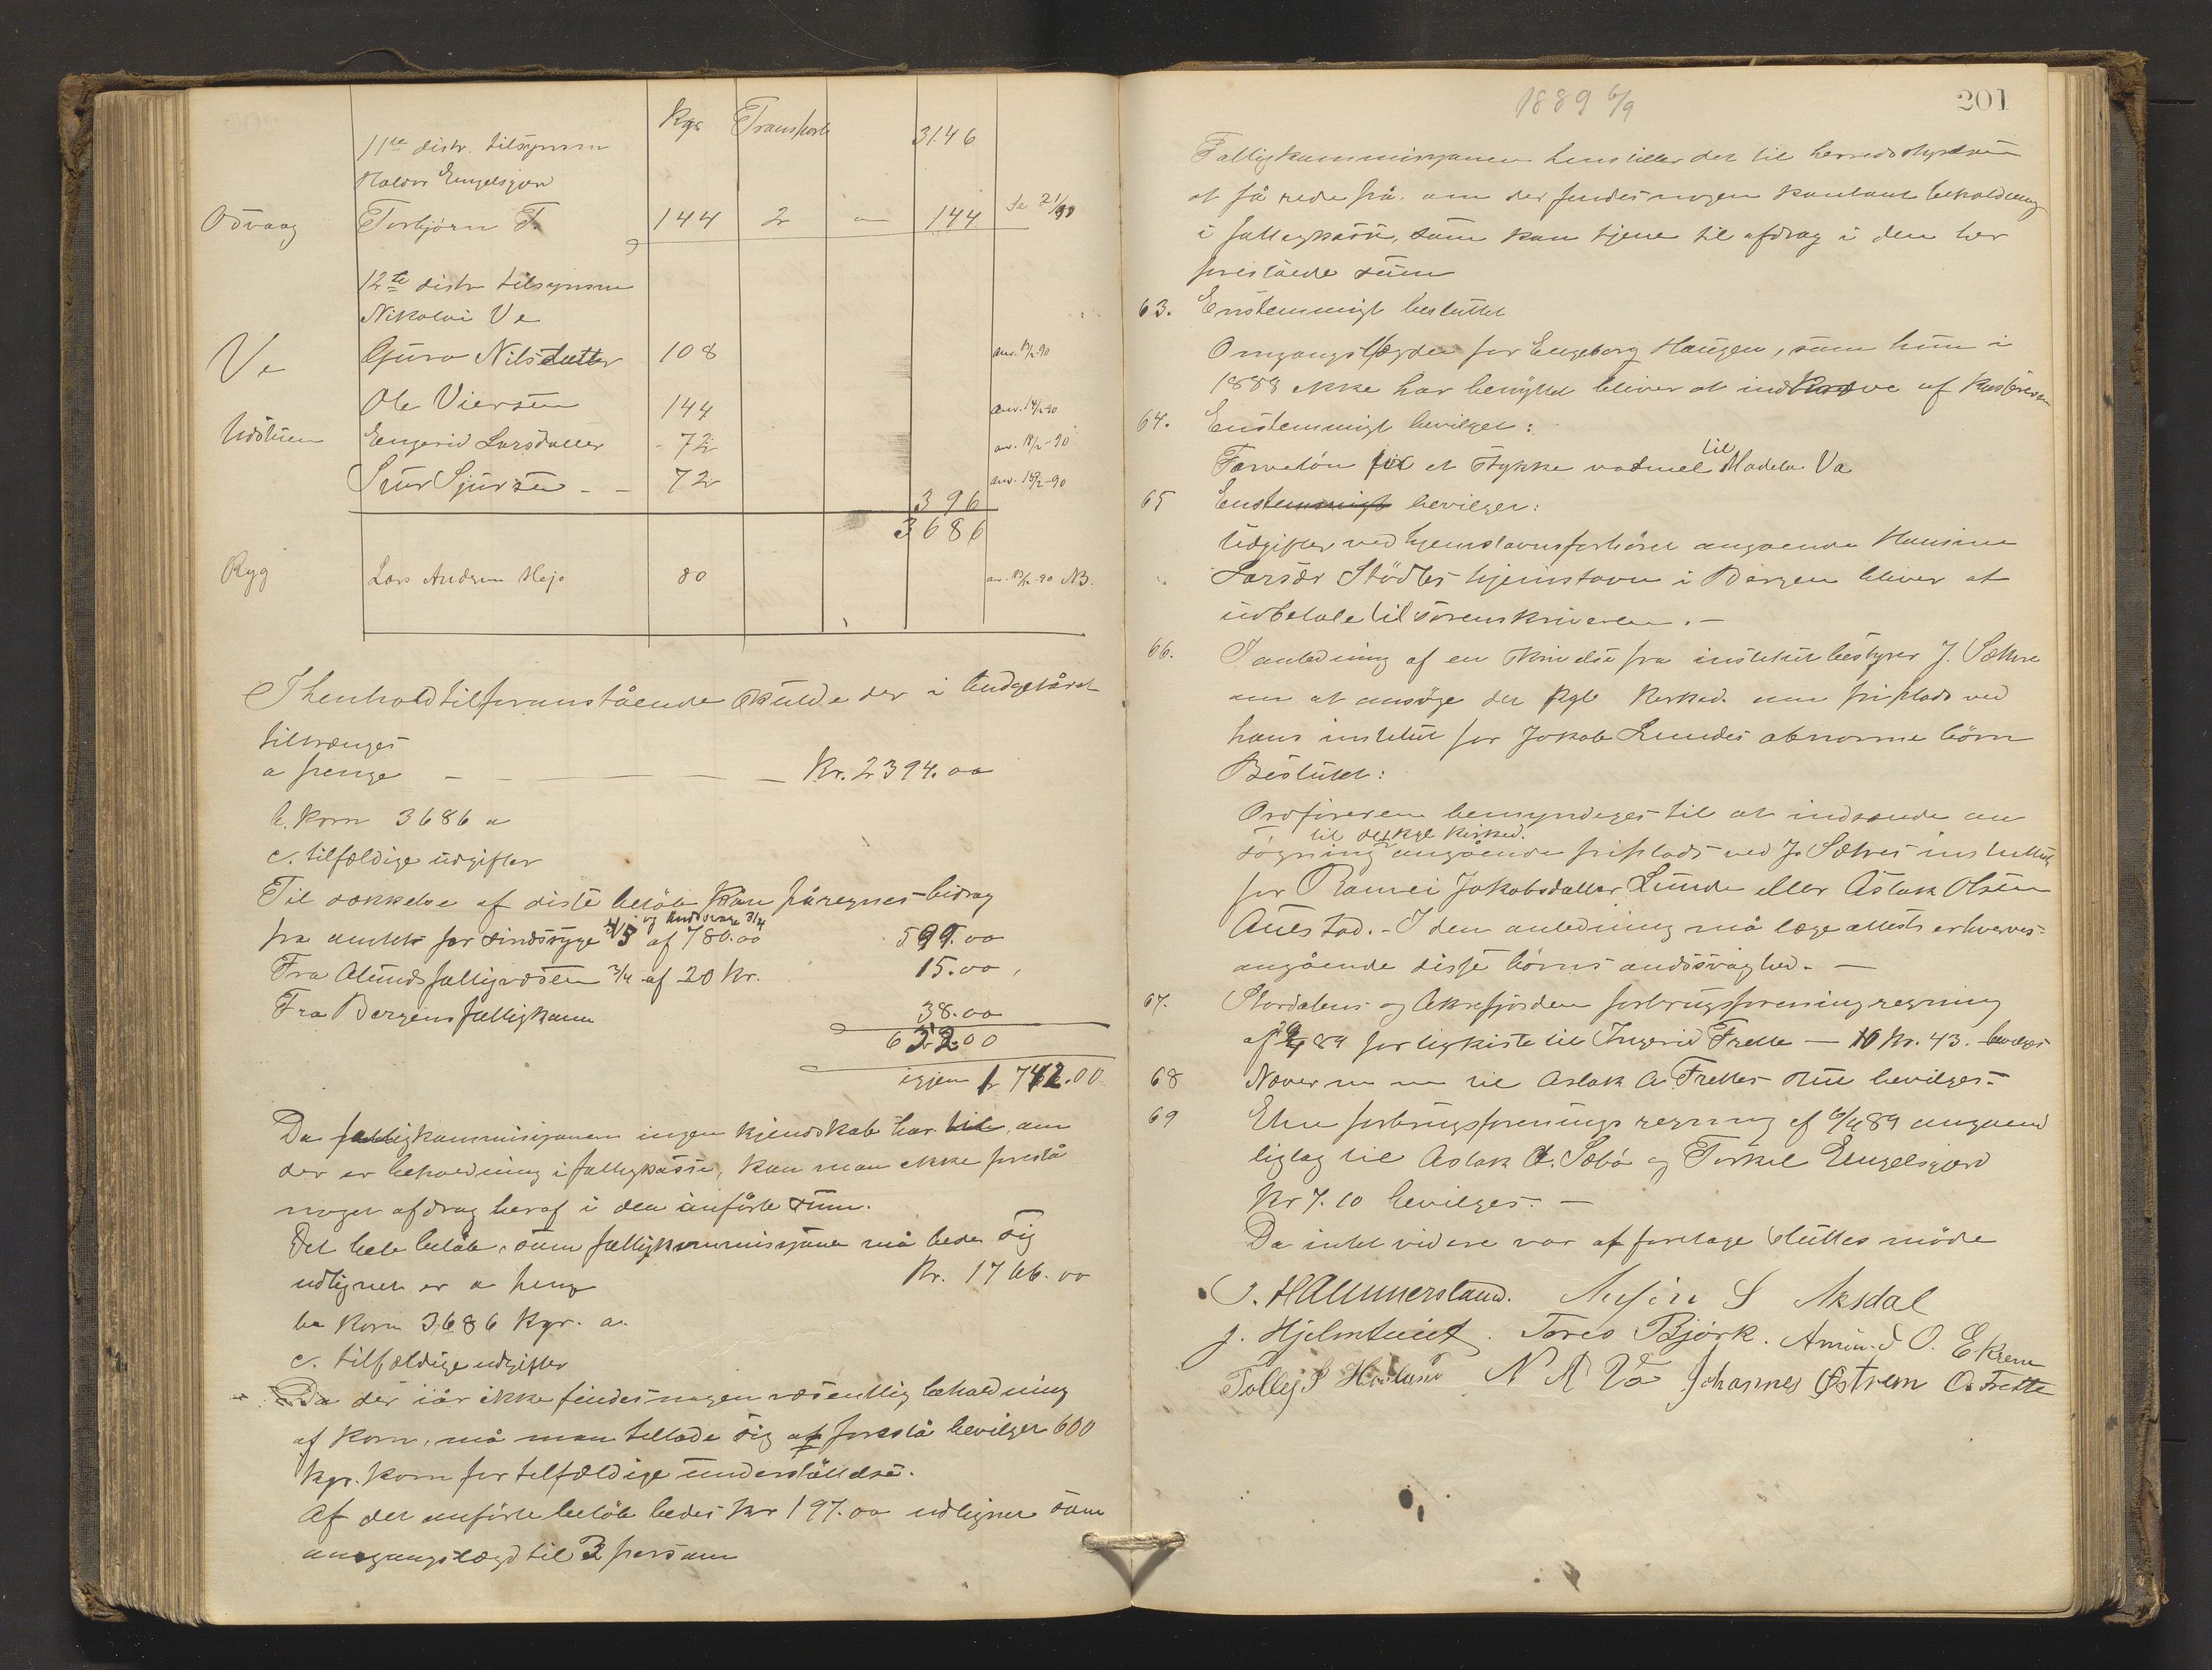 Kgr Transport 3146
11te distr. tilsynsm
Halvor Engelsgjerd
Odvaag Torbjørn 144 2 " 144 21/90
12te distr tilsynsm
Nikolai Ve
Ve Guro Nilsdatter 108 anv. 13/2-90
Ole Viersen 144 anv. 14/2-90
Engerid Larsdatter - 72 anv. 18/2-90
Sjur Sjursen - - 72 anv. 15/2-90
396
3686
Ryg Lars Andersen 80 an. 13/2-90 NB.
I henhold til foranstående skulde der i budgetåret
tiltrænges
a penge - - - - Kr. 2394.00
b. Korn 3686 a
c. tilfældige udgifter
Til dækkelse af disse beløb kan påregnes bidrag
fra amtet for sindssyge 4/5 af 780.00 599.00
og Andssvage 3/4
Fra Ølunds fattigvæsen 3/4 af 20 kr. 15.00
Fra Bergens fattigkasse 38.00
652.00
igjen 1742.00
Da fattigkommisjonen ingen kjendskab har til, om
der er beholdning i fattigkassen, kan man ikke foreslå
noget afdrag heraf i den anførte sum.
Det hele beløb, som fattigkommisjonen må bede sig
udlignet er a penge Kr. 1766.00
b Korn 3686 Kgr. a.
c. tilfældige udgifter
Da der iår ikke findes nogen væsentlig beholdning
af korn, må man tillade sig at foreslå bevilget 600
kgr. korn for tilfældige understøttelse.
Af det anførte beløb bedes kr 197.00 udlignet som
omgangslægd til 3 personer
1889 6/9 201
Fattigkommisjonen henstiller det til herredsstyrelsen
at få rede på, om der findes nogen kontant beholdning
i fattigkassen, som kan tjene til afdrag i den her
foreslåede sum
63. Enstemmigt besluttet
Omgangslægden for Engeborg Haugen, som hun i
1888 ikke har benyttet bliver at indkræve af kassereren
64. Enstemmigt bevilget:
Farveløn for et stykke vadmel til Madela Va
65 Enstemmigt bevilget:
Udgifter ved hjemstavnsforhøret angaaende Hansine
Larsdr Stödles hjemstavn i Bergen bliver at
udbetale til sorenskriveren. -
66. I anledning af en skrivelse fra institutbestyrer J. Sæthre
om at ansøge det kgl Kirked. om friplads ved
hans institut for Jakob Lundes abnorme børn
Besluttet:
Ordføreren bemyndiges til at indsende an
til det kgl kirked.
søgning angående friplads ved J. Sæthres institut
for Jakobsdatter Lunde eller Aslak Olsen
Auestad. - I den anledning må lægeattest erhverves
angående disse børns andssvaghed. -
67. Stordalens og Ølensfjordens forbrugsforening regning
af 29/4 89 for ligkiste til Ingerid Frette - 10 Kr. 43. bevilges
68 Næver til Aslak A. Frettes stue bevilges.
69 Etne forbrugsforenings regning af 6/4 89 angaaend
liglag til Aslak A. Sæbø og Torkel Engelsgjerd
Kr 7.10 bevilges. -
Da intet videre var at foretage sluttes møde
J. Hammersland. S Aksdal
J. Hjelmtveit. Tores Bjørk. Amund O. Ekrene
Tollej S N A Va Johannes Østrem O. Frette